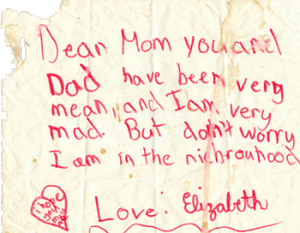 Dear Mom you and
Dad have been very
mean, and I am very
mad. But don't worry
I am in the nichrouhood
Love: Elizabeth
I hope
you